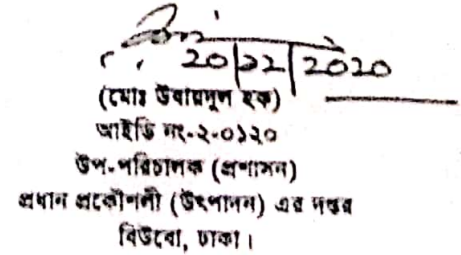 ২০|১২|২০২০
(মোঃ উবায়দুল হক)
আইডি নং-২-০১২০
উপ-পরিচালক (প্রশাসন)
প্রধান প্রকৌশলী (উৎপাদন) এর দপ্তর
বিউবো, ঢাকা।